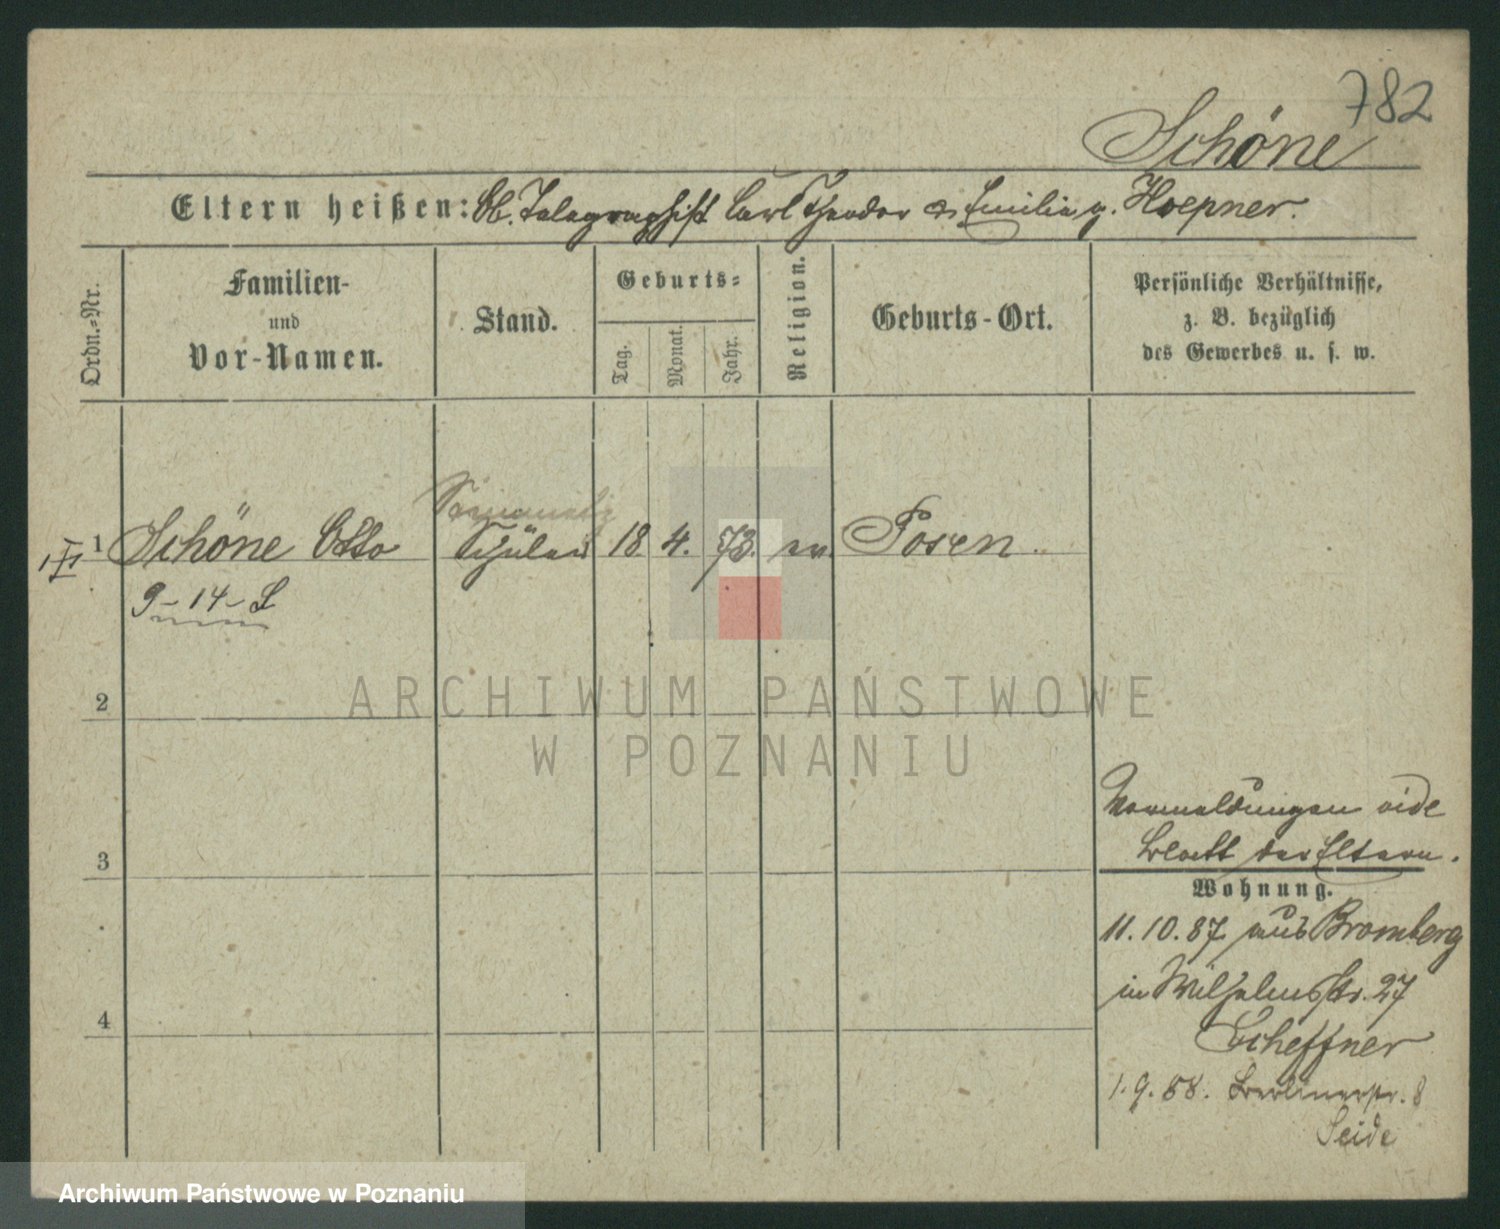 782
Schöne
Eltern heißen: Ob. Telegraphist Carl Theodor & Emilie g. Hoepner.
Ordn.-Nr.
Familien-
und
Vor-Namen.
Stand.
Geburts-
Tag.
Monat.
Jahr.
Religion.
Geburts-Ort.
Persönliche Verhältnisse,
z. B. bezüglich
des Gewerbes u. s. w.
1 Schöne Otto Schüler 18 4. 73. ev. Posen
9-14-
2
3
4
Vormeldungen vide
Blatt der Eltern.
Wohnung.
11.10.87 aus Bromberg
in Wilhelmstr. 27
Scheffner
1.9.88. Berlinerstr. 8
Seide
ARCHIWUM PAŃSTWOWE
W POZNANIU
Archiwum Państwowe w Poznaniu